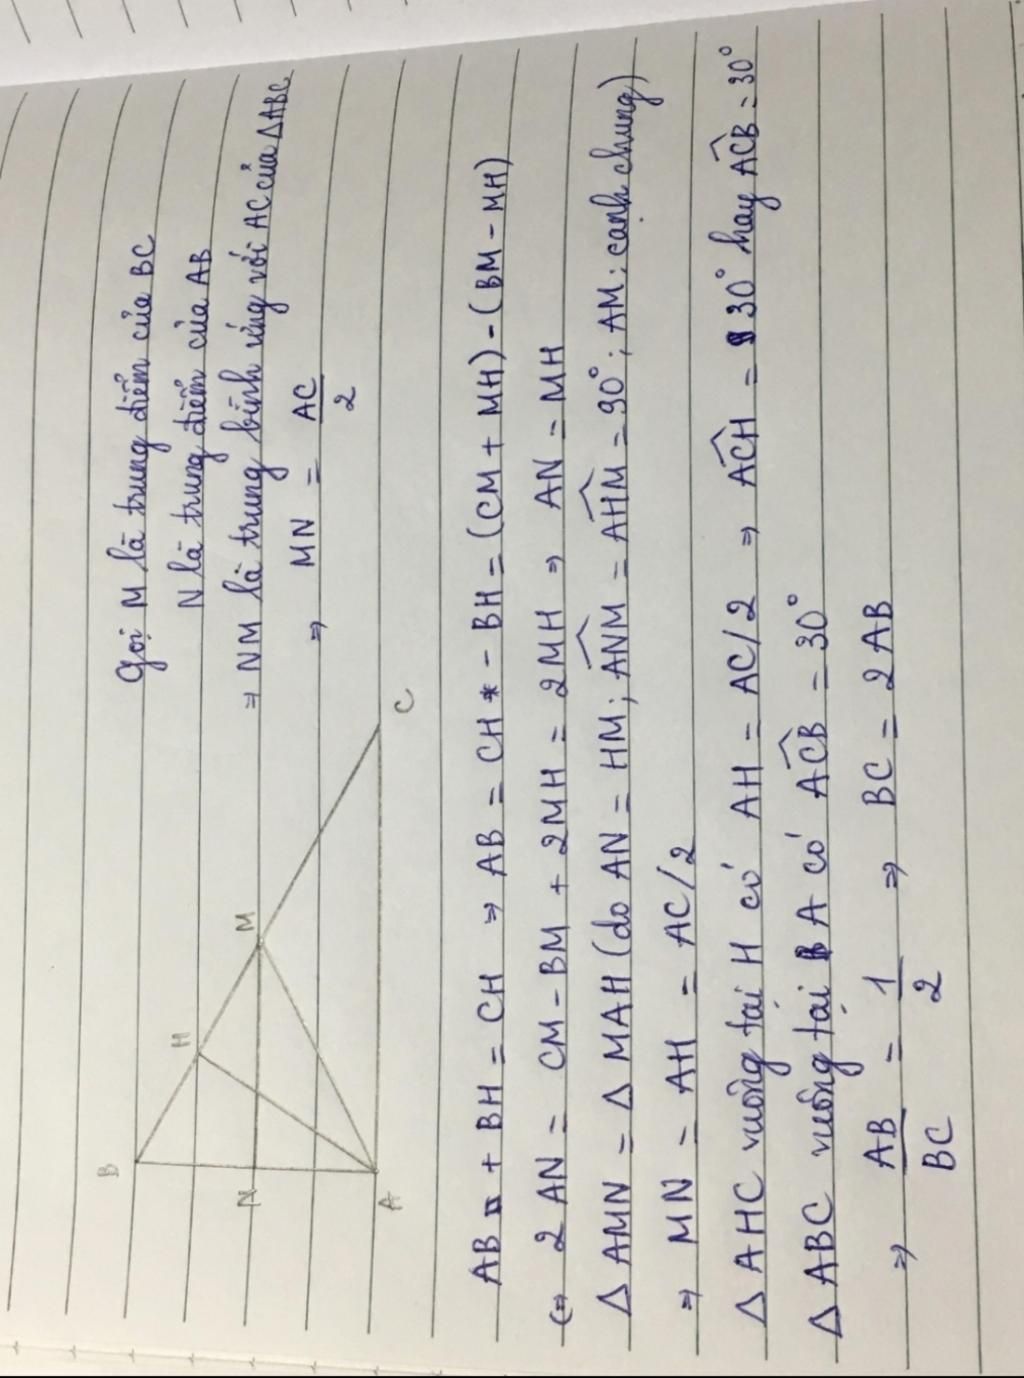 Gọi M là trung điểm của BC
N là trung điểm của AB
⇒ NM là trung bình ứng với AC của ΔABC
⇒ MN = AC/2
B
H
M
N
A
C
AB + BH = CH ⇒ AB = CH - BH = (CM + MH) - (BM - MH)
⇔ 2AN = CM - BM + 2MH = 2MH ⇒ AN = MH
Δ AMN = Δ MAH (do AN = HM; ANM = AHM = 90°; AM: cạnh chung)
⇒ MN = AH = AC/2
Δ AHC vuông tại H có AH = AC/2 ⇒ ACH = 30° hay ACB = 30°
Δ ABC vuông tại A có ACB = 30°
⇒ AB/BC = 1/2 ⇒ BC = 2AB